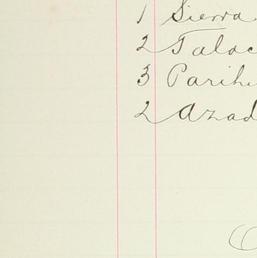 1 Sierra
2 Taloc
3 Parih
2 Azad